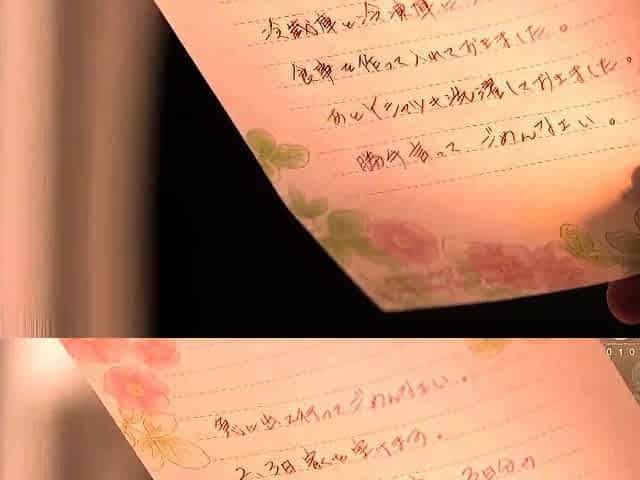 冷蔵庫と冷凍庫に
食事を作って入れておきました。
あとYシャツも洗濯しておきました。
勝手言って ごめんなさい。
ごめんなさい。
2、3日家を空けます。
3日分の
010